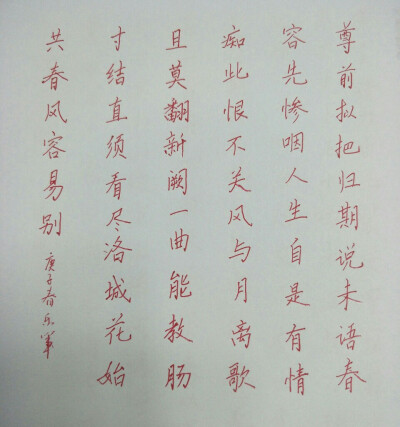 尊前拟把归期说未语春
容先惨咽人生自是有情
痴此恨不关风与月离歌
且莫翻新阕一曲能教肠
寸结直须看尽洛城花始
共春风容易别
庚子春